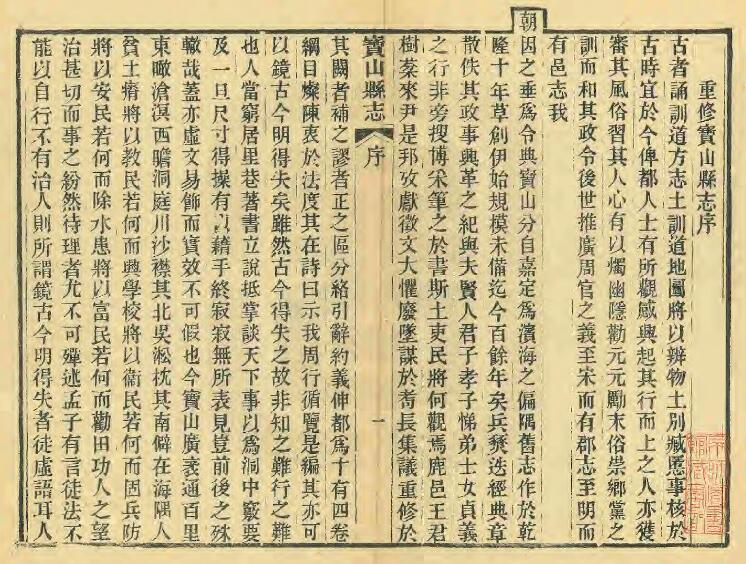 重修寶山縣志序
古者誦訓道方志土訓道地圖將以辨物土別臧慝事核於
古時宜於今俾都人士有所觀感興起其行而上之人亦獲
審其風俗習其人心有以燭幽隱勸元元勵末俗崇鄉黨之
訓而和其政令後世推廣周官之義至宋而有郡志至明而
有邑志我
朝因之垂爲令典寶山分自嘉定爲濱海之偏隅舊志作於乾
隆十年草創伊始規模未備迄今百餘年矣兵燹迭經典章
散佚其政事興革之紀與夫賢人君子孝子悌弟士女貞義
之行非旁搜博采筆之於書斯土吏民將何觀焉鹿邑王君
樹棻來尹是邦攷獻徵文大懼廢墜謀於耆長集議重修於
寶山縣志 序 一
其闕者補之謬者正之區分絡引辭約義伸都爲十有四卷
綱目燦陳衷於法度其在詩曰示我周行循覽是編其亦可
以鏡古今明得失矣雖然古今得失之故非知之難行之難
也人當窮居里巷著書立說抵掌談天下事以爲洞中竅要
及一旦尺寸得操有以藉手終寂寂無所表見豈前後之殊
轍哉蓋亦虛文易飾而實效不可假也今寶山廣袤通百里
東瞰滄溟西瞻洞庭川沙襟其北吳淞枕其南僻在海隅人
貧土瘠將以教民若何而興學校將以衞民若何而固兵防
將以安民若何而除水患將以富民若何而勸田功人之望
治甚切而事之紛然待理者尤不可殫述孟子有言徒法不
能以自行不有治人則所謂鏡古今明得失者徒虛語耳人